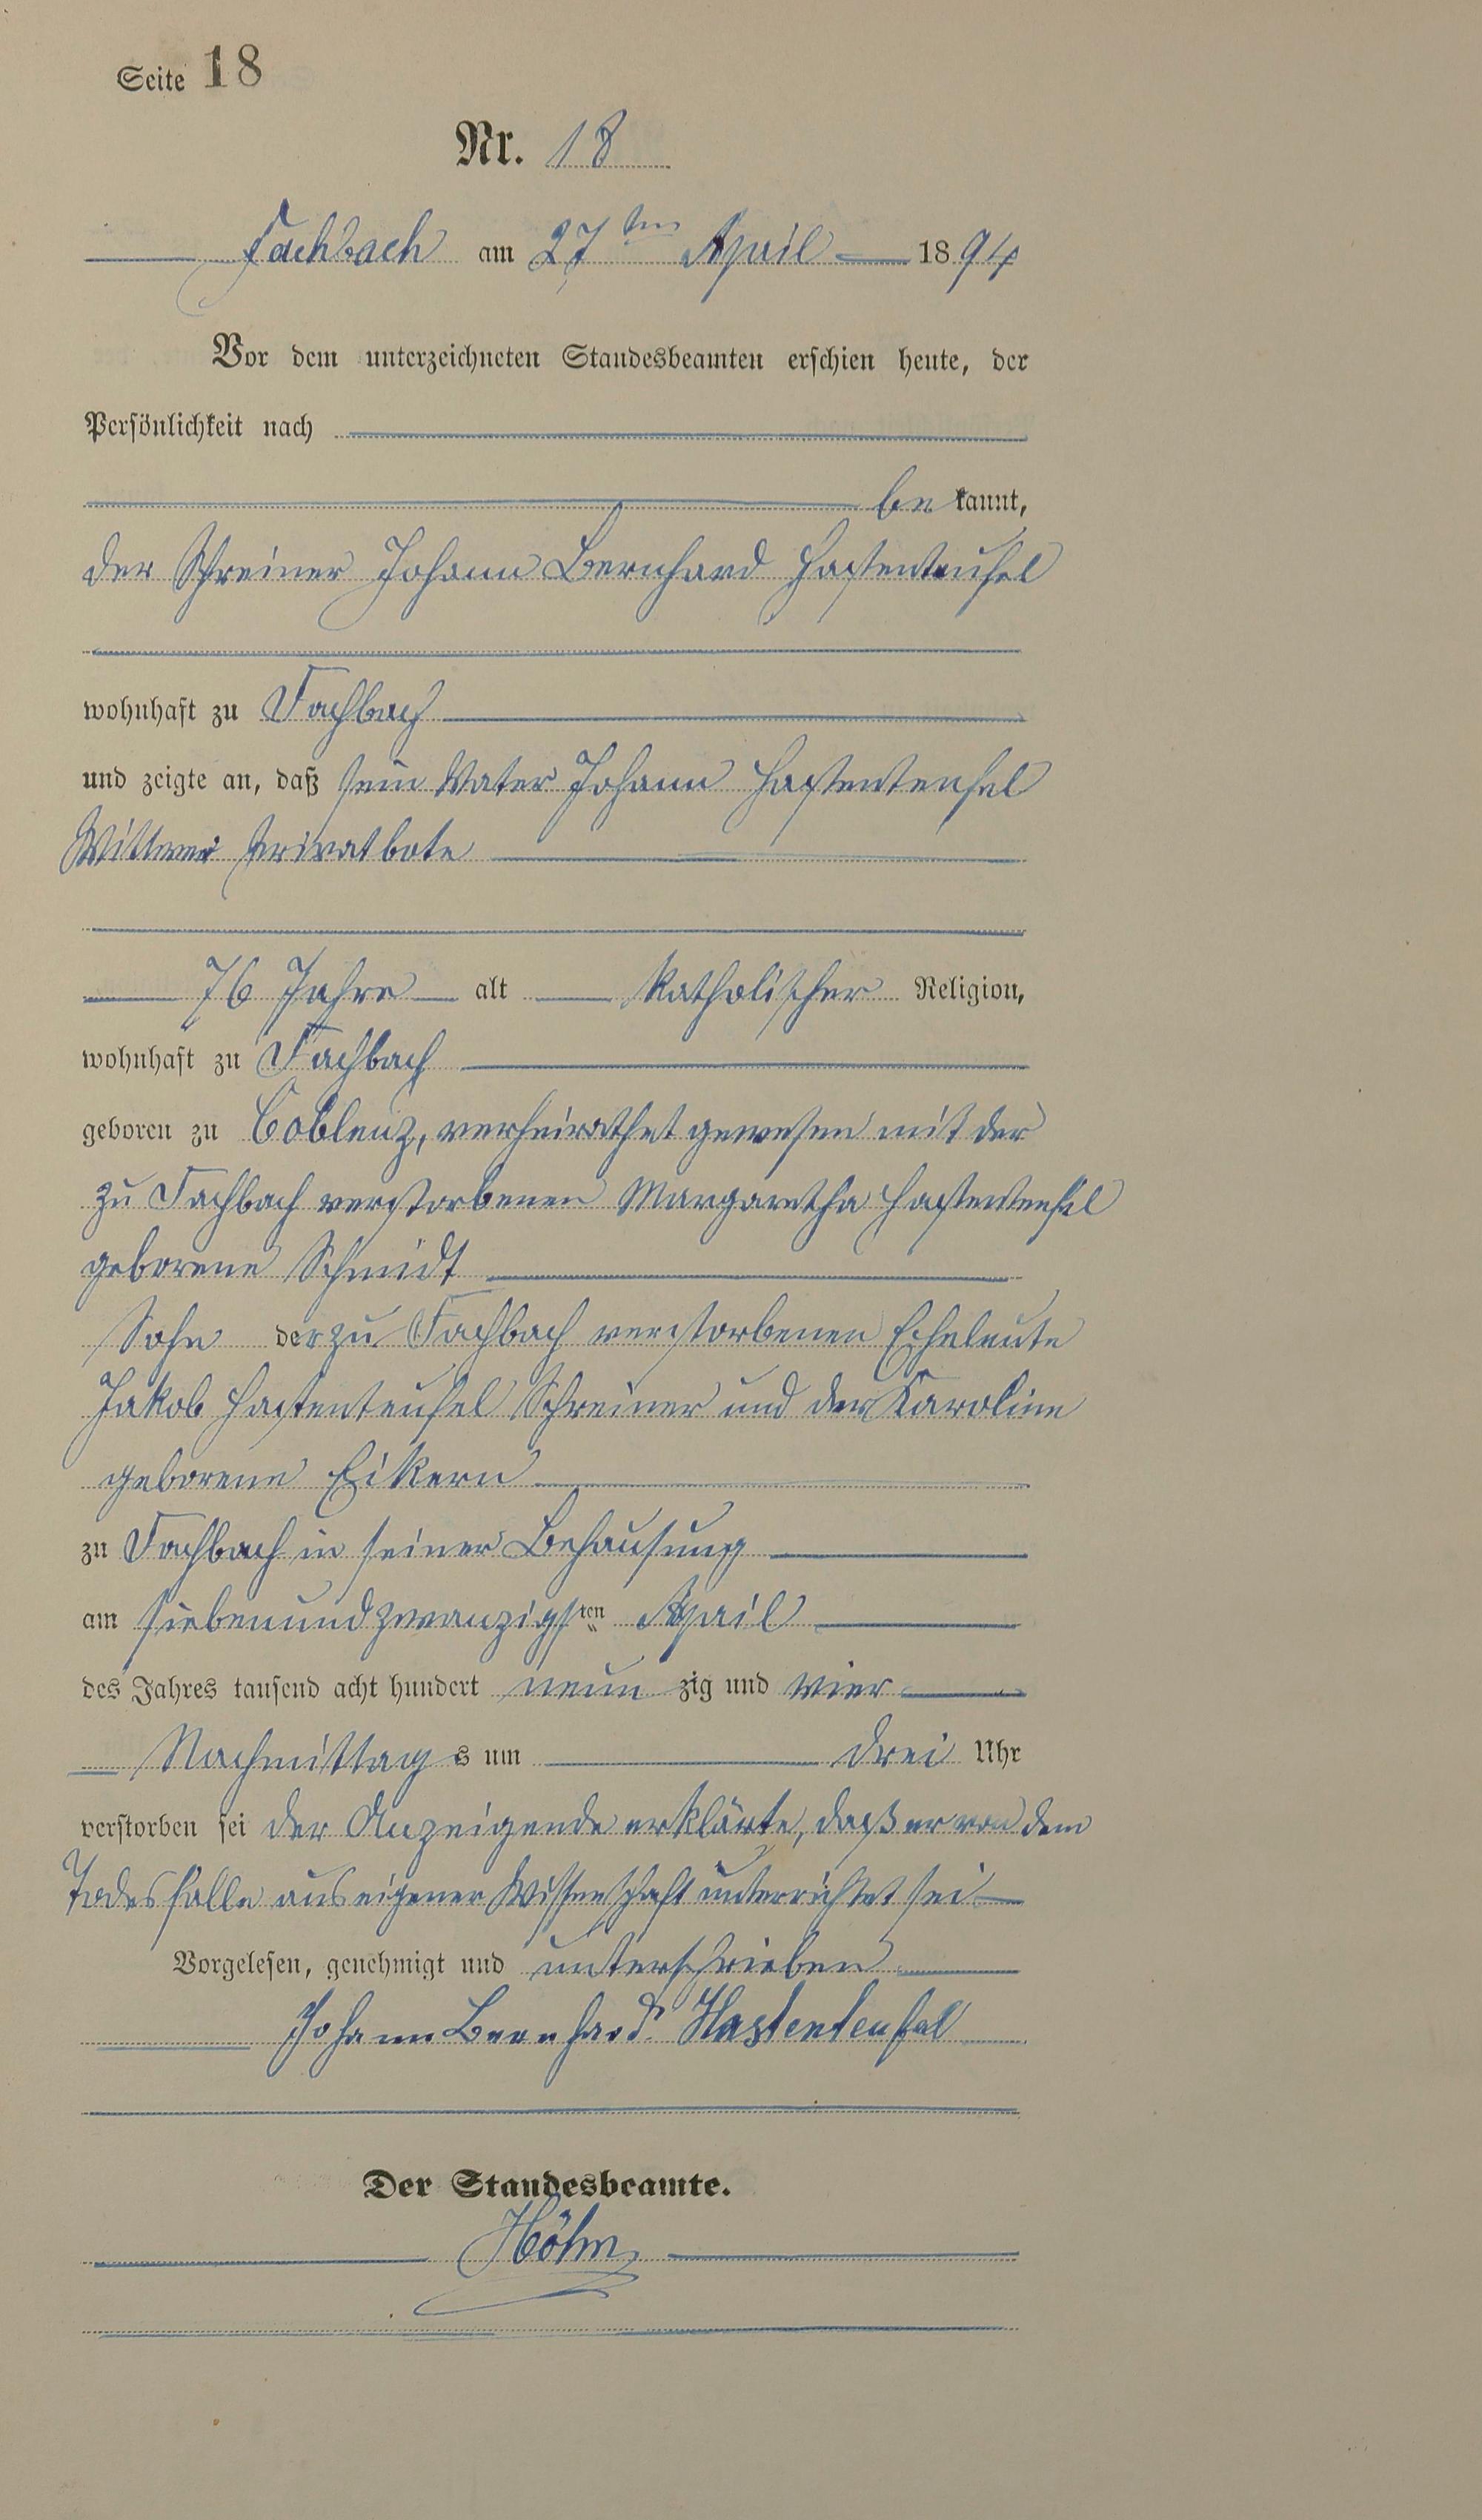 Seite 18
Nr. 18
Fachbach am 27ten April 1894
Vor dem unterzeichneten Standesbeamten erschien heute, der
Persönlichkeit nach
be kannt,
der Schreiner Johann Bernhard Hastenteufel
wohnhaft zu Fachbach
und zeigte an, daß sein Vater Johann Hastenteufel
Wittwer Privatbote
76 Jahre alt katholischer Religion,
wohnhaft zu Fachbach
geboren zu Coblenz, verheirathet gewesen mit der
zu Fachbach verstorbenen Margaretha Hastenteufel
geborene Schmidt
Sohn der zu Fachbach verstorbenen Eheleute
Jakob Hastenteufel Schreiner und der Karoline
geborene Eikern
zu Fachbach in seiner Behausung
am siebenundzwanzigsten April
des Jahres tausend acht hundert neun zig und vier
Nachmittag s um drei Uhr
verstorben sei der Anzeigende erklärte, daß er von dem
Todesfalle aus eigener Wissenschaft unterrichtet sei
Vorgelesen, genehmigt und unterschrieben
Johann Bernhard Hastenteufel
Der Standesbeamte.
Höhn